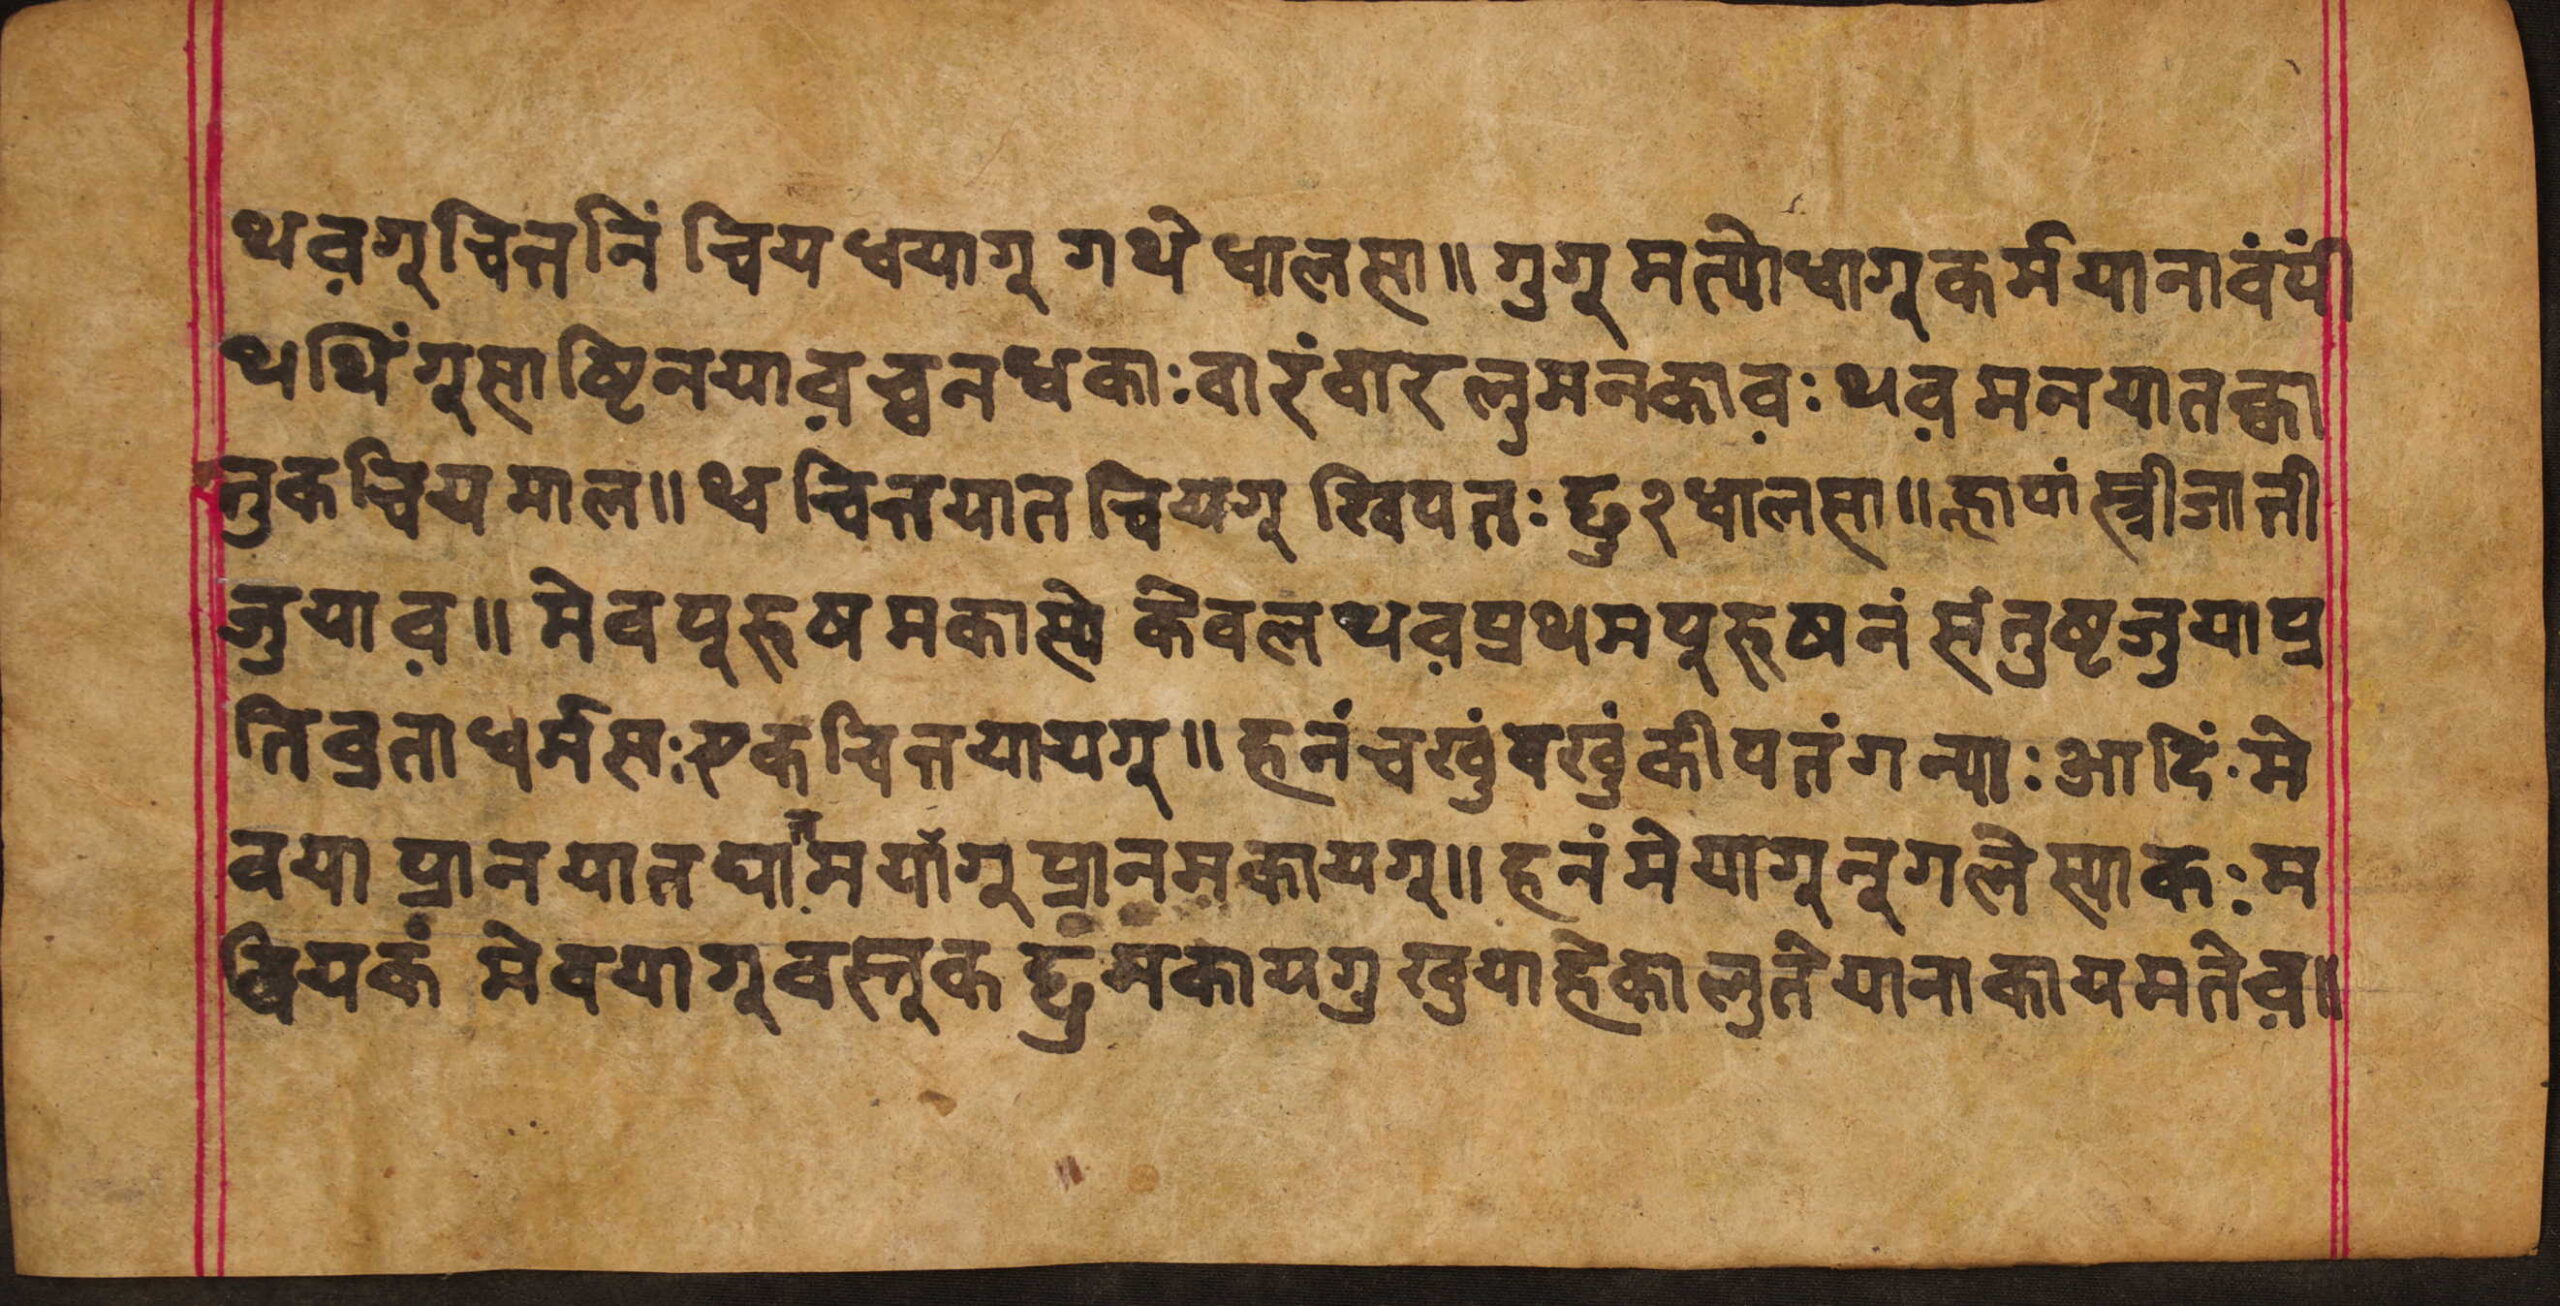 थव़गूचित्तनिं च्वियधयागू गथे धालसा॥ गुगू मत्यो धागू कर्मयानावंपीं
थथिंगूसाष्टिनयाव़च्वनधकाः वारंवार लुमनकाव़ः थव़मनयातक्वा
तुकच्वियमाल॥ थ्व चित्तयात च्वियगू खिपतः छु२धालसा॥ ह्लापां स्त्रीजाती
जुयाव़॥ मेवपूरुषमकास्ये केवल थव़प्रथमपूरुषनं संतुष्टजुयाप्र
तिव्रताधर्मसः एकचित्तयायगू॥ हनं चखुंबखुं कीपतंगन्याः आदिं मे
वयाप्रानयातघानमयागू प्रानमकायगू॥ हनं मेयागूनूगलेस्याकः म
बियकं मेवयागूवस्तूक छुं मकायगु खुयाहेकालुतेयानाकायमतेव़॥